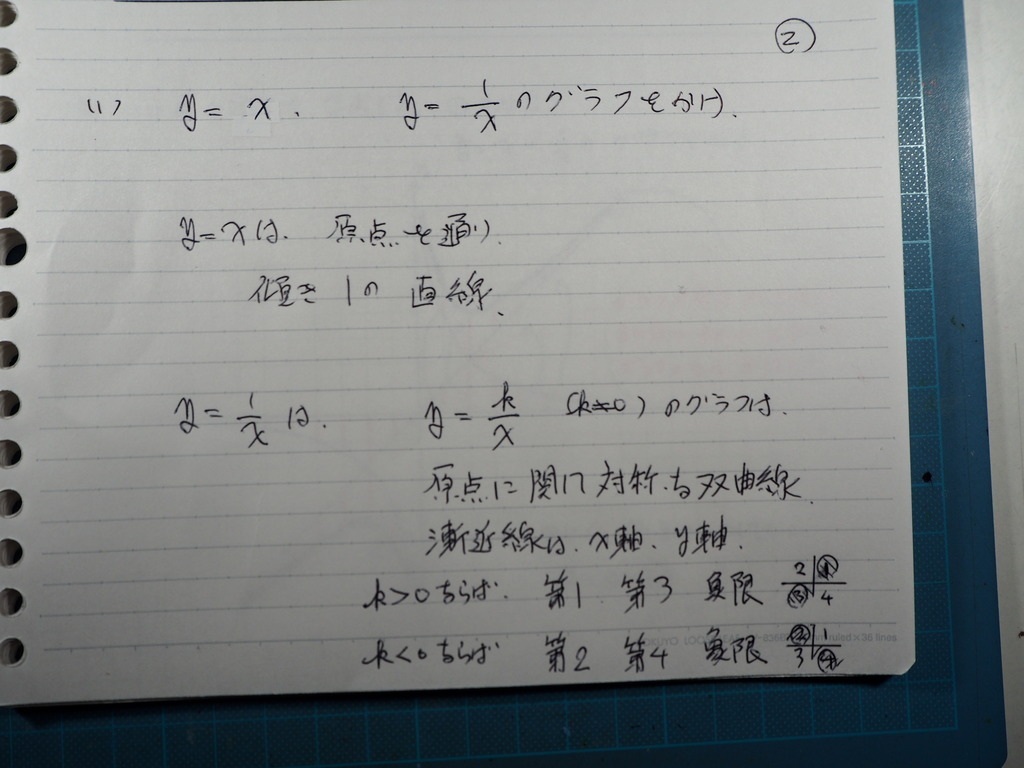 ②
(1) y = x, y = 1/x のグラフをかけ、
y = x は、原点を通り、
傾き 1の 直線、
y = 1/x は、 y = k/x (k≠0) のグラフは、
原点に関して対称な双曲線、
漸近線は、x軸、y軸、
k>0ならば、第1 第3 象限 2 1 3 4
k<0ならば 第2 第4 象限 2 1 3 4
ruled×36 lines